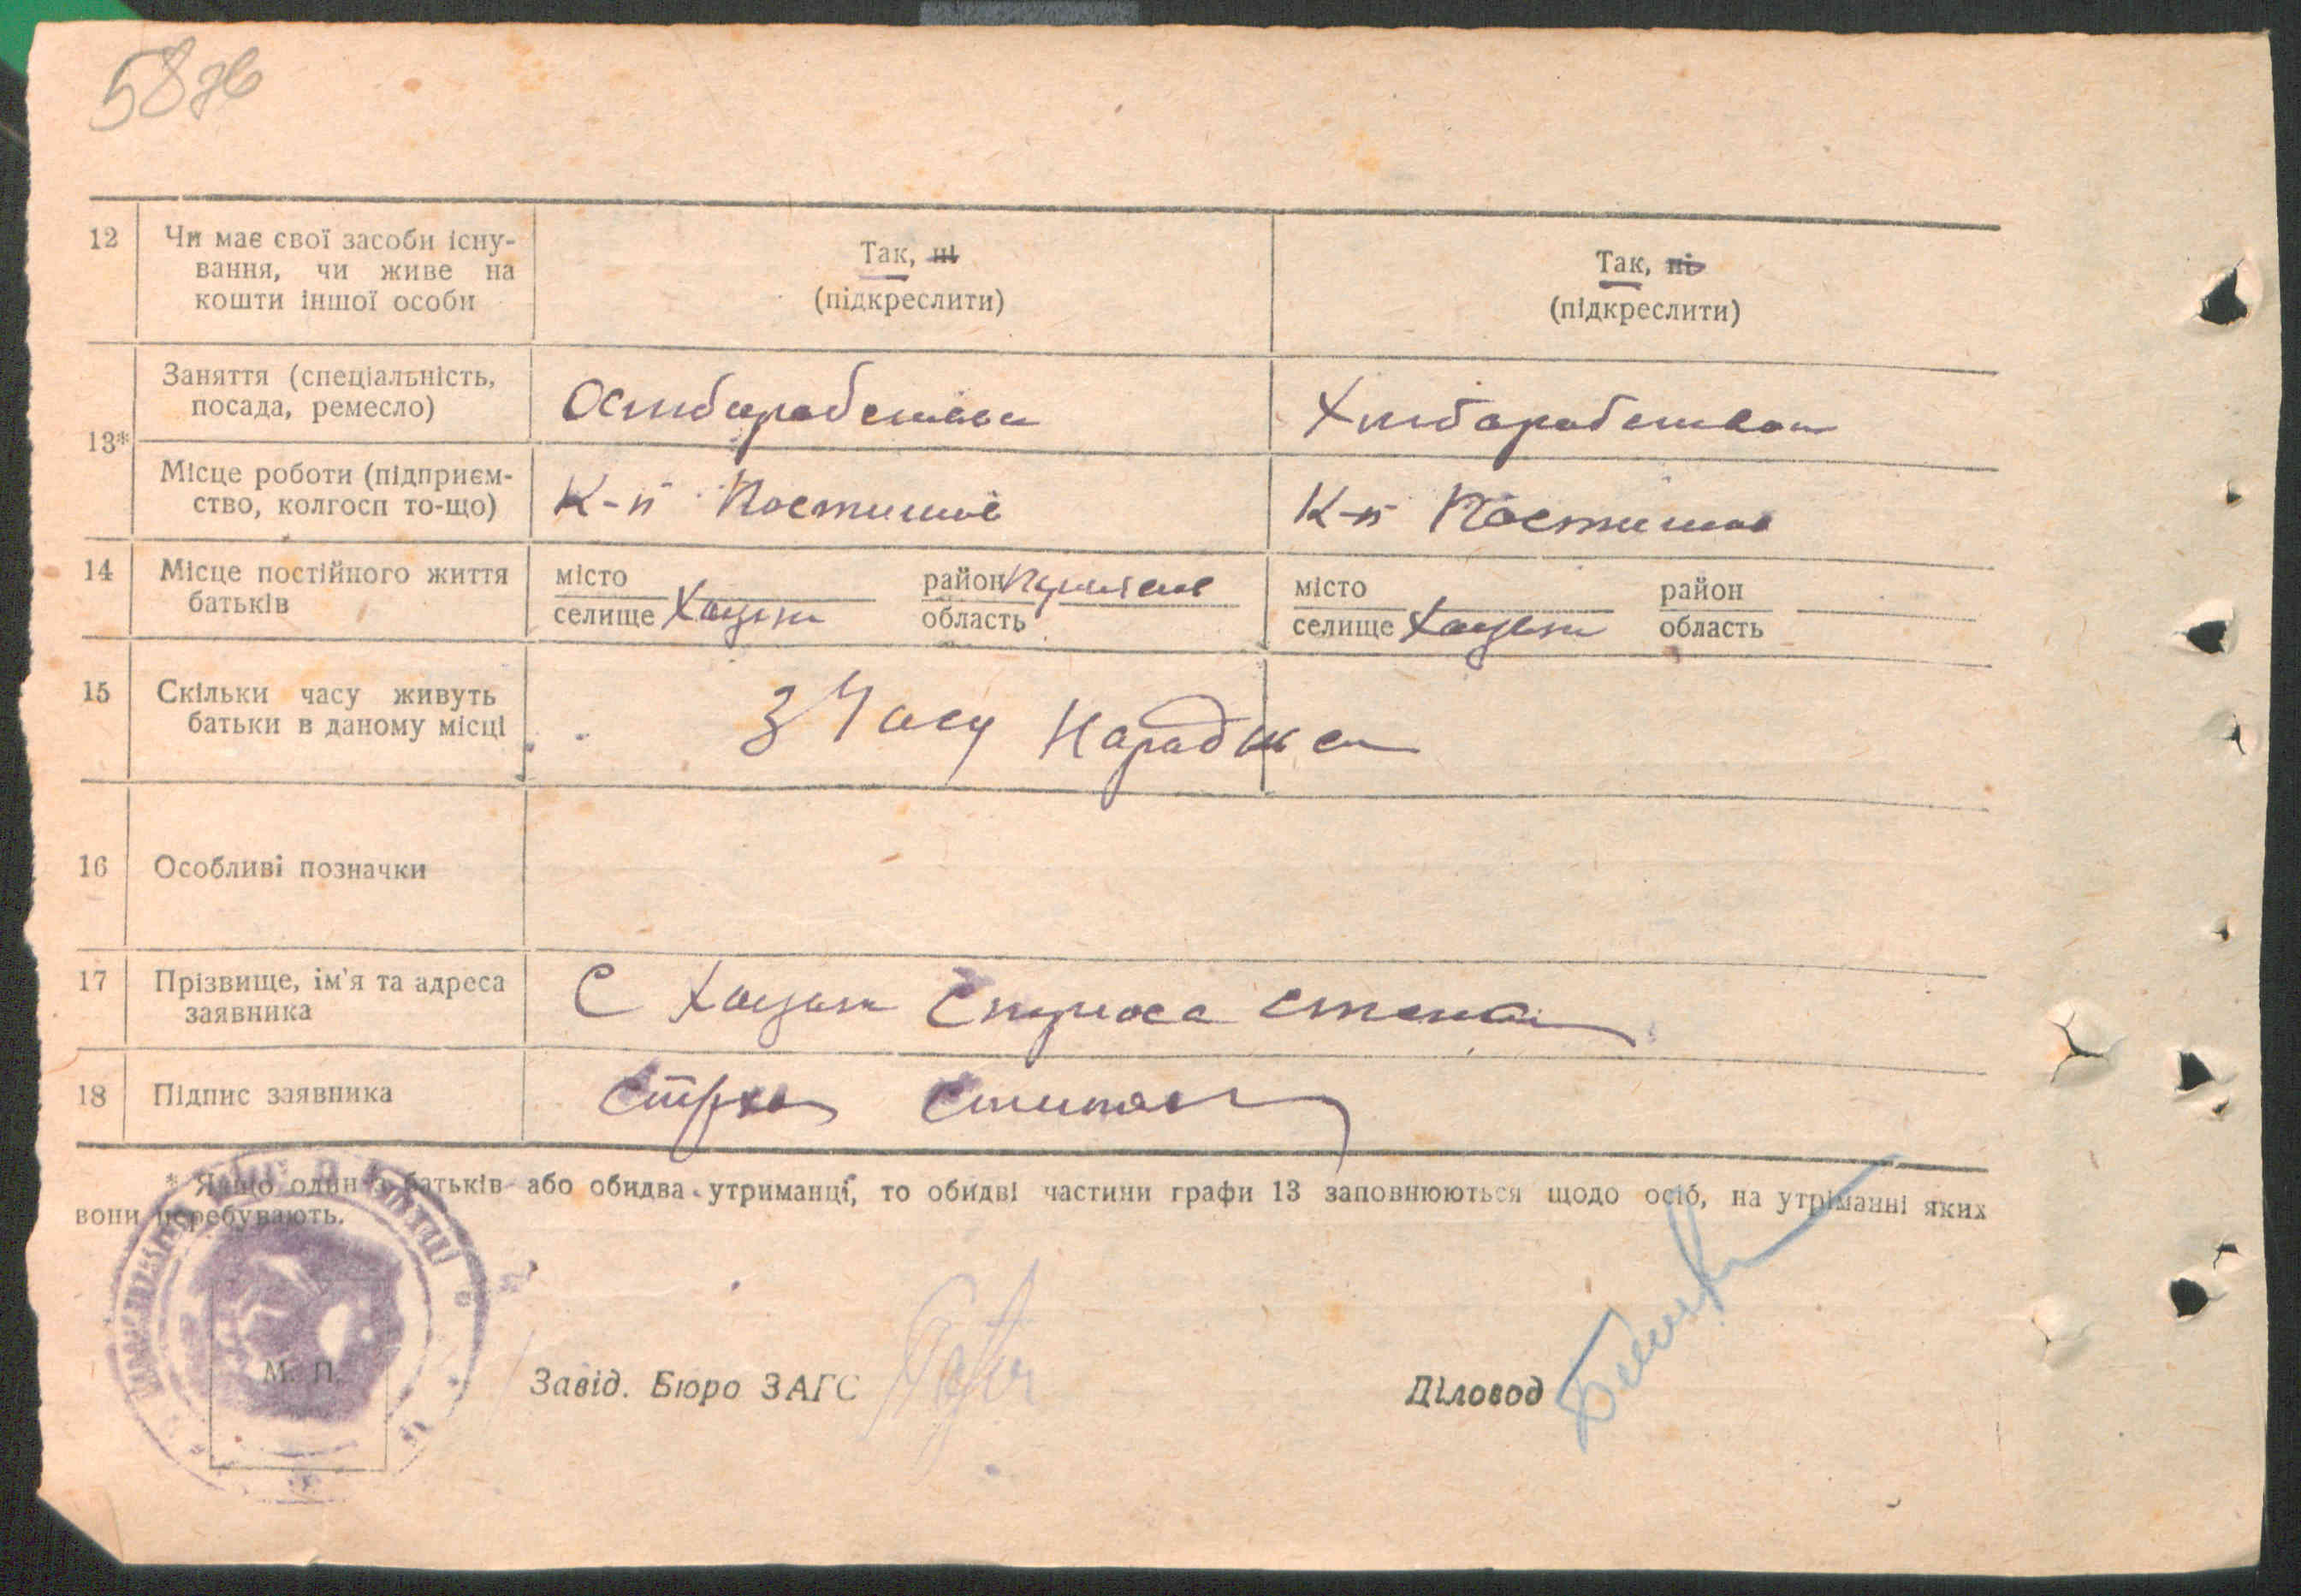 58зв
12 Чи має свої засоби існу-
вання, чи живе на
кошти іншої особи
Так, ні
(підкреслити)
Так, ні
(підкреслити)
13*
Заняття (спеціальність,
посада, ремесло)
Хлібаробство
Місце роботи (підприєм-
ство, колгосп то-що)
К-п Постишева
К-п Постишева
14 Місце постійного життя
батьків
місто
селище Хацьки
район
область
місто
селище Хацьки
район
область
15 Скільки часу живуть
батьки в даному місці
З Часу Народжен
16 Особливі позначки
17 Прізвище, ім'я та адреса
заявника
С Хацьки Степан
18 Підпис заявника
* Якщо один з батьків або обидва утриманці, то обидві частини графи 13 заповнюються щодо осіб, на утріманні яких
вони перебувають.
М. П.
Завід. Бюро ЗАГС
Діловод